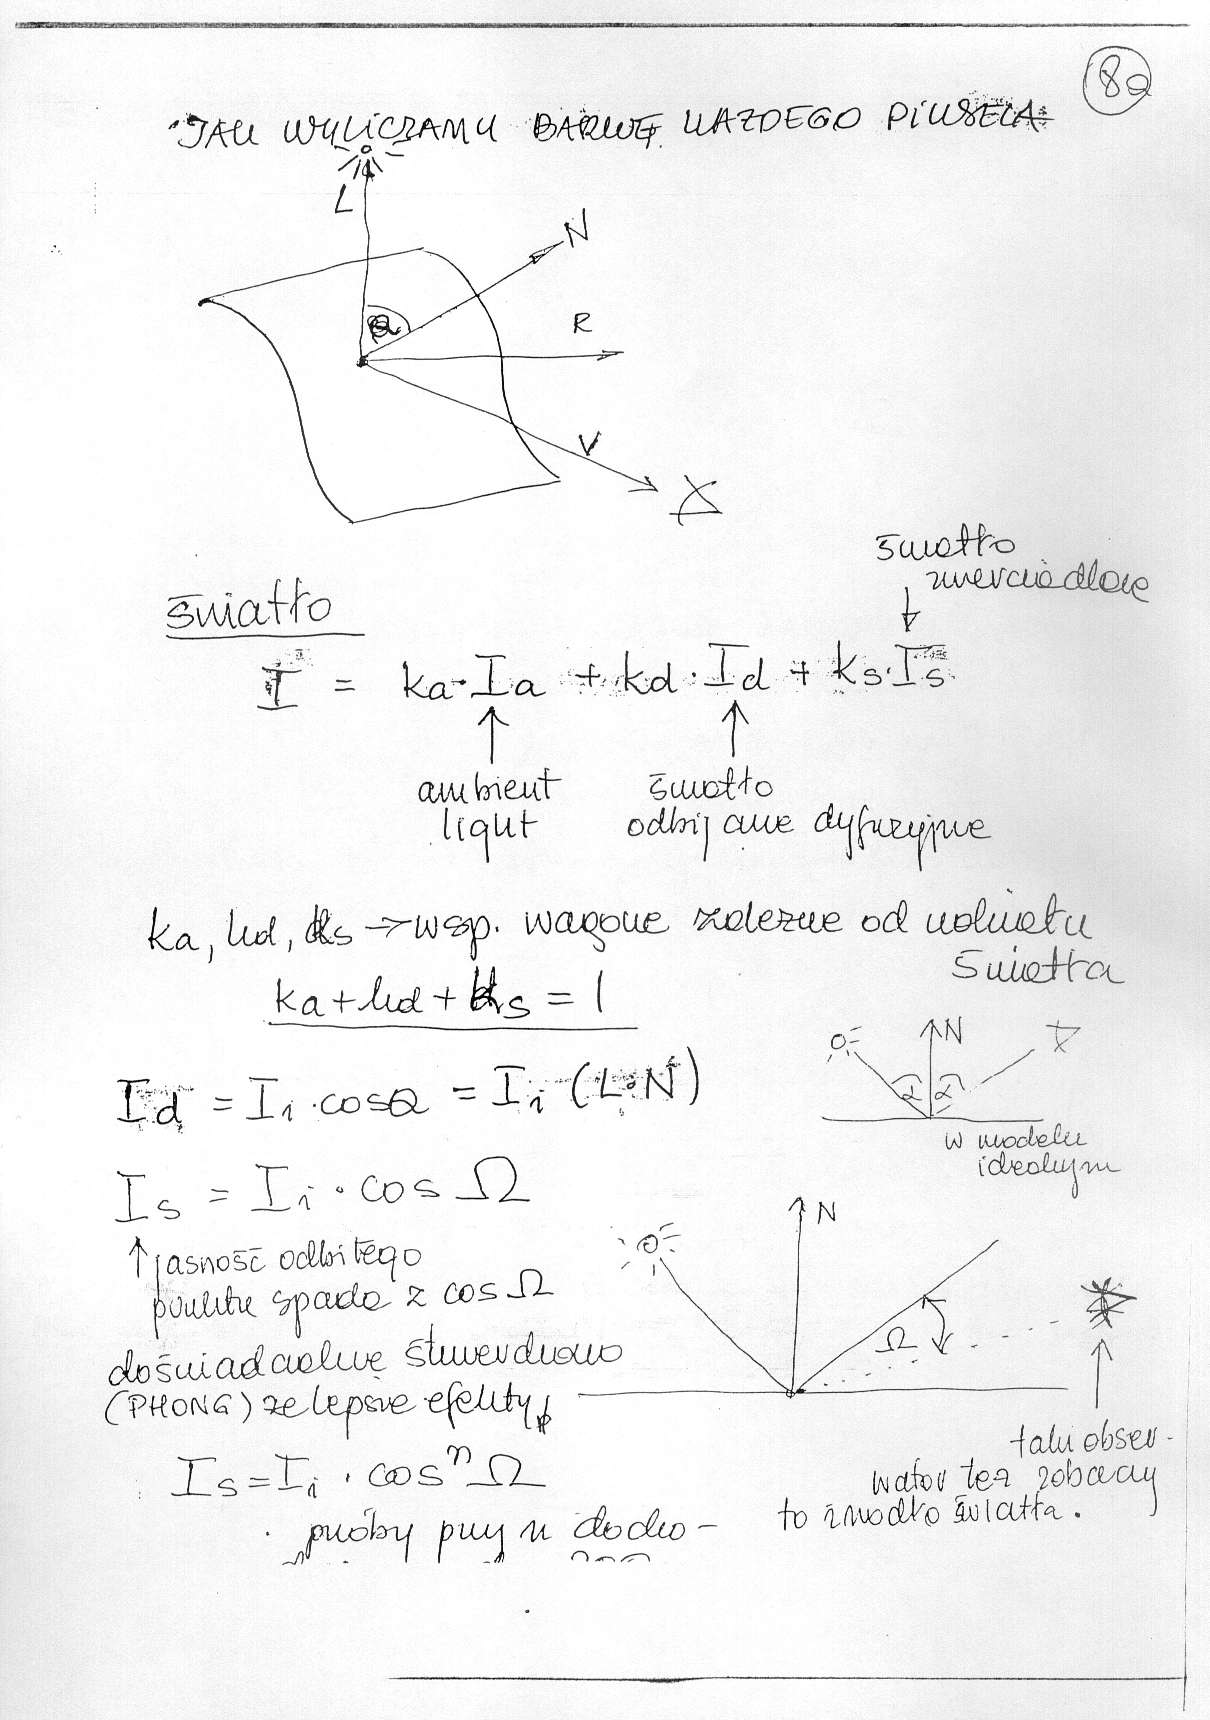 8a
JAK WYLICZAMY BARWĘ KAŻDEGO PIKSELA
L
N
Θ
R
V
światło
zwierciadlane
światło
I = ka·Ia + kd·Id + ks·Is
ambient
light
światło
odbijane dyfuzyjnie
ka, kd, ks → wsp. wagowe zależne od
światła
ka + kd + ks = 1
N
α α
w modelu
idealnym
Id = Ii·cosΘ = Ii (L∘N)
Is = Ii · cos Ω
N
jasność odbitego
punktu spada z cos Ω
Ω
doświadczalnie stwierdzono
(PHONG) że lepsze efekty
Is = Ii · cosⁿ Ω
taki obser-
wator też zobaczy
to źródło światła.
próby przy n